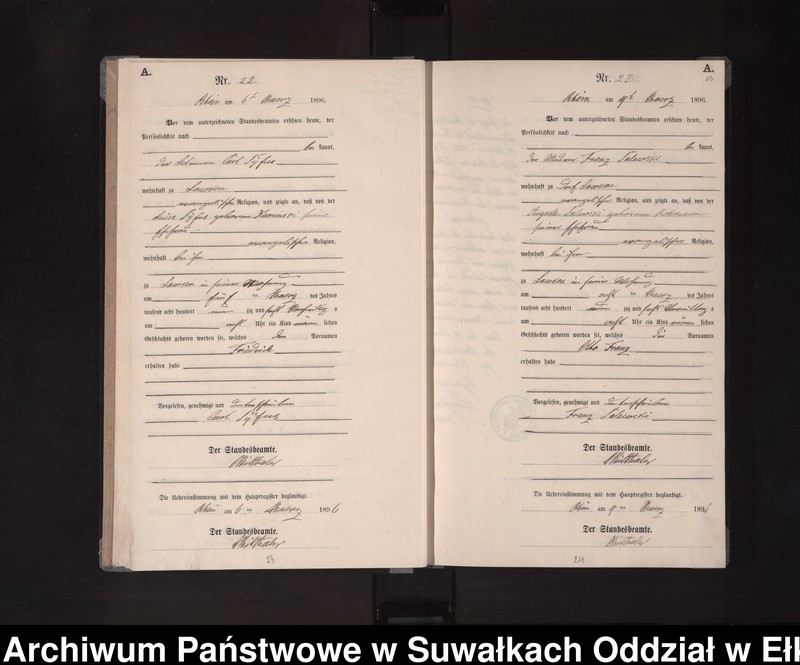 A.
Nr. 22.
Rhein am 6t Maerz 1896.
Vor dem unterzeichneten Standesbeamten erschien heute, der
Persönlichkeit nach
be kannt,
Carl
wohnhaft zu
evangelischer Religion, und zeigte an, daß von der
geborenen
Ehefrau
evangelischer Religion,
wohnhaft bei ihm
zu in seiner Wohnung
am fünf ten Maerz des Jahres
tausend acht hundert neun zig und sechs Vormittag s
um acht Uhr ein Kind männ lichen
Geschlechts geboren worden sei, welches den Vornamen
Friedrich
erhalten habe
Vorgelesen, genehmigt und unterschrieben
Carl
Der Standesbeamte.
Die Uebereinstimmung mit dem Hauptregister beglaubigt.
Rhein am 6 ten Maerz 1896
Der Standesbeamte.
23
A.
Nr. 23.
Rhein am 9t Maerz 1896.
Vor dem unterzeichneten Standesbeamten erschien heute, der
Persönlichkeit nach
be kannt,
der Franz Salewski
wohnhaft zu Dorf
evangelischer Religion, und zeigte an, daß von der
Auguste Salewski geborenen
seiner Ehefrau
evangelischer Religion,
wohnhaft bei ihm
zu in seiner Wohnung
am acht ten Maerz des Jahres
tausend acht hundert neun zig und sechs Vormittag s
um acht Uhr ein Kind männ lichen
Geschlechts geboren worden sei, welches die Vornamen
Otto Franz
erhalten habe
Vorgelesen, genehmigt und unterschrieben
Franz Salewski
Der Standesbeamte.
Die Uebereinstimmung mit dem Hauptregister beglaubigt.
Rhein am 9 ten Maerz 1896
Der Standesbeamte.
24
Archiwum Państwowe w Suwałkach Oddział w Ełk